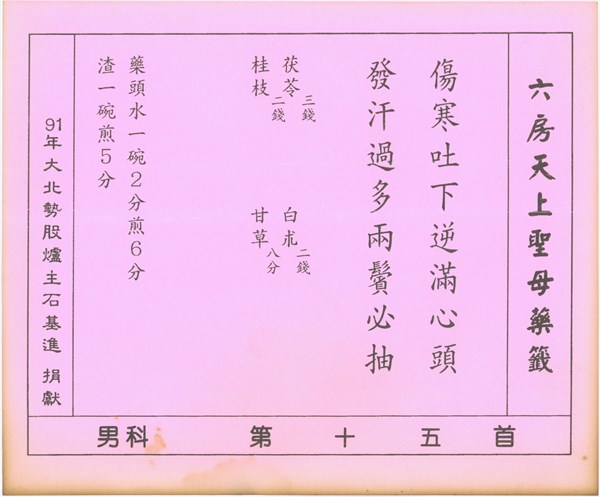 六房天上聖母藥籤
傷寒吐下逆滿心頭
發汗過多兩鬢必抽
茯苓三錢 白朮二錢
桂枝二錢 甘草八分
藥頭水一碗2分煎6分
渣一碗煎5分
91年大北勢股爐主石基進 捐獻
男科 第十五首